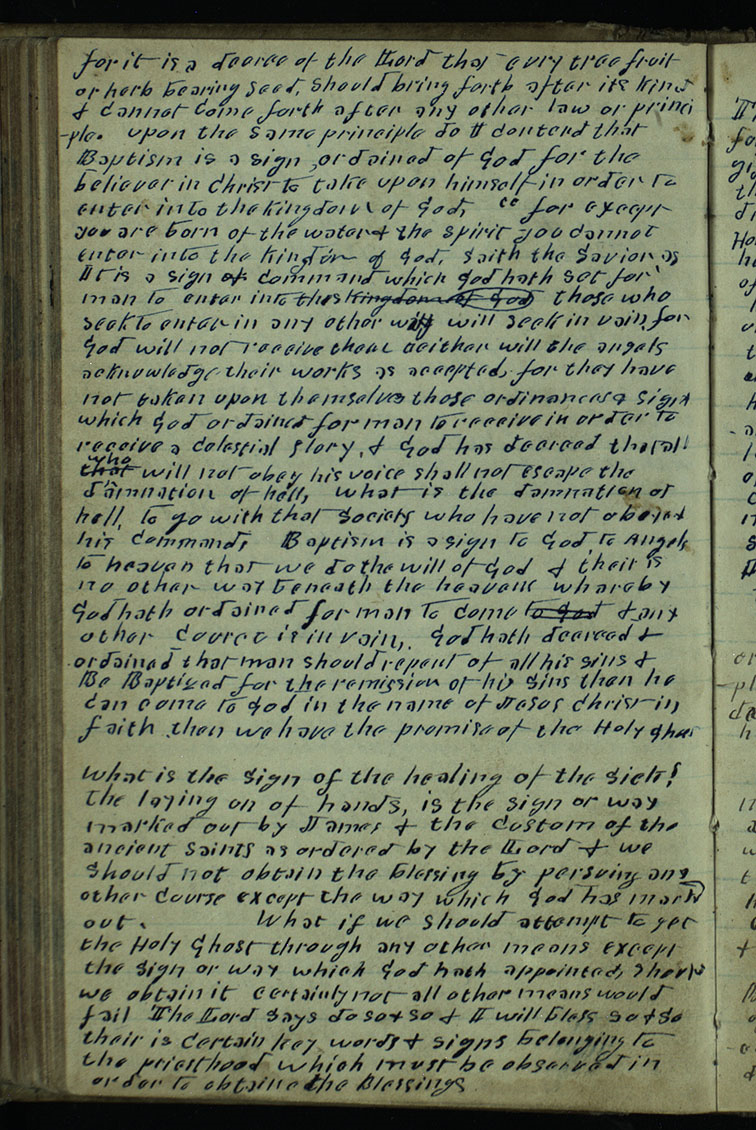 for it is a decree of the Lord that evry tree fruit
or herb bearing seed, should bring forth after its kind
& cannot come forth after any other law or princi
-ple. upon the same principle do I contend that
Baptism is a sign ordained of God for the
believer in Christ to take upon himself in order to
enter into the kingdom of God, "for except
you are born of the water & the spirit you cannot
enter into the kingdom of God, saith the Savior as
It is a sign of command which God hath set for
man to enter into this kingdom of God those who
seek to enter in any other way will seek in vain, for
God will not receive them neither will the angels
acknowledge their works as accepted, for they have
not taken upon themselves those ordinances & signs
which God ordained for man to receive in order to
receive a celestial glory, & God has decreed that all
who
that will not obey his voice shall not escape the
damnation of hell, what is the damnation of
hell, to go with that society who have not obeyed
his commands Baptism is a sign to God, to Angels
to heaven that we do the will of God & their is
no other way beneath the heavens whareby
God hath ordained for man to come to God & any
other Cource is in vain,. God hath decreed &
ordained that man should repent of all his sins &
Be Baptized for the remission of his sins then he
can come to God in the name of Jesus Christ in
faith then we have the promise of the Holy Ghost
What is the sign of the healing of the sick?
the laying on of hands, is the sign or way
marked out by James & the custom of the
ancient saints as ordered by the Lord & we
should not obtain the blessing by persuing any
other course except the way which God has markd
out. What if we should attempt to get
the Holy Ghost through any other means except
the sign or way which God hath appointed, should
we obtain it certainly not all other means would
fail The Lord says do so & so & I will bless so & so
their is certain key words & signs belonging to
the priesthood which must be observed in
order to obtaine the Blessings